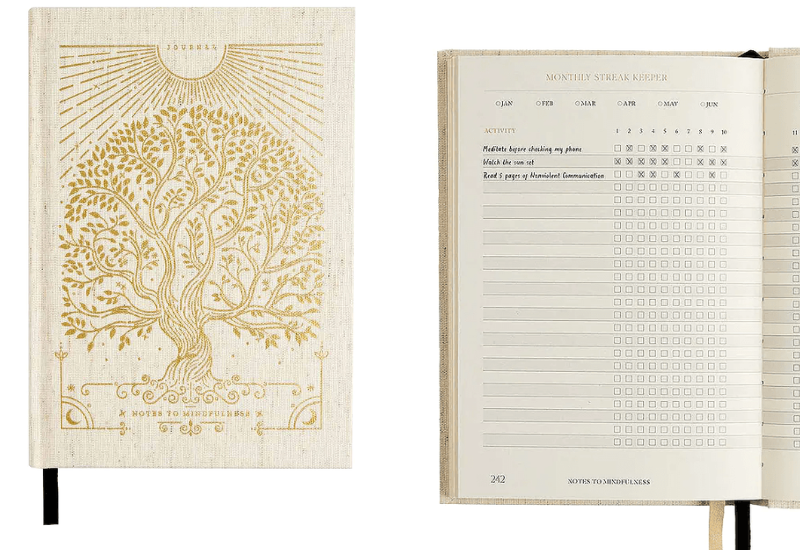 JOURNAL
NOTES TO MINDFULNESS
MONTHLY STREAK KEEPER
JAN FEB MAR APR MAY JUN
ACTIVITY 1 2 3 4 5 6 7 8 9 10 11
Meditate before checking my phone
Watch the sun set
Read 5 pages of Nonviolent Communication
242 NOTES TO MINDFULNESS